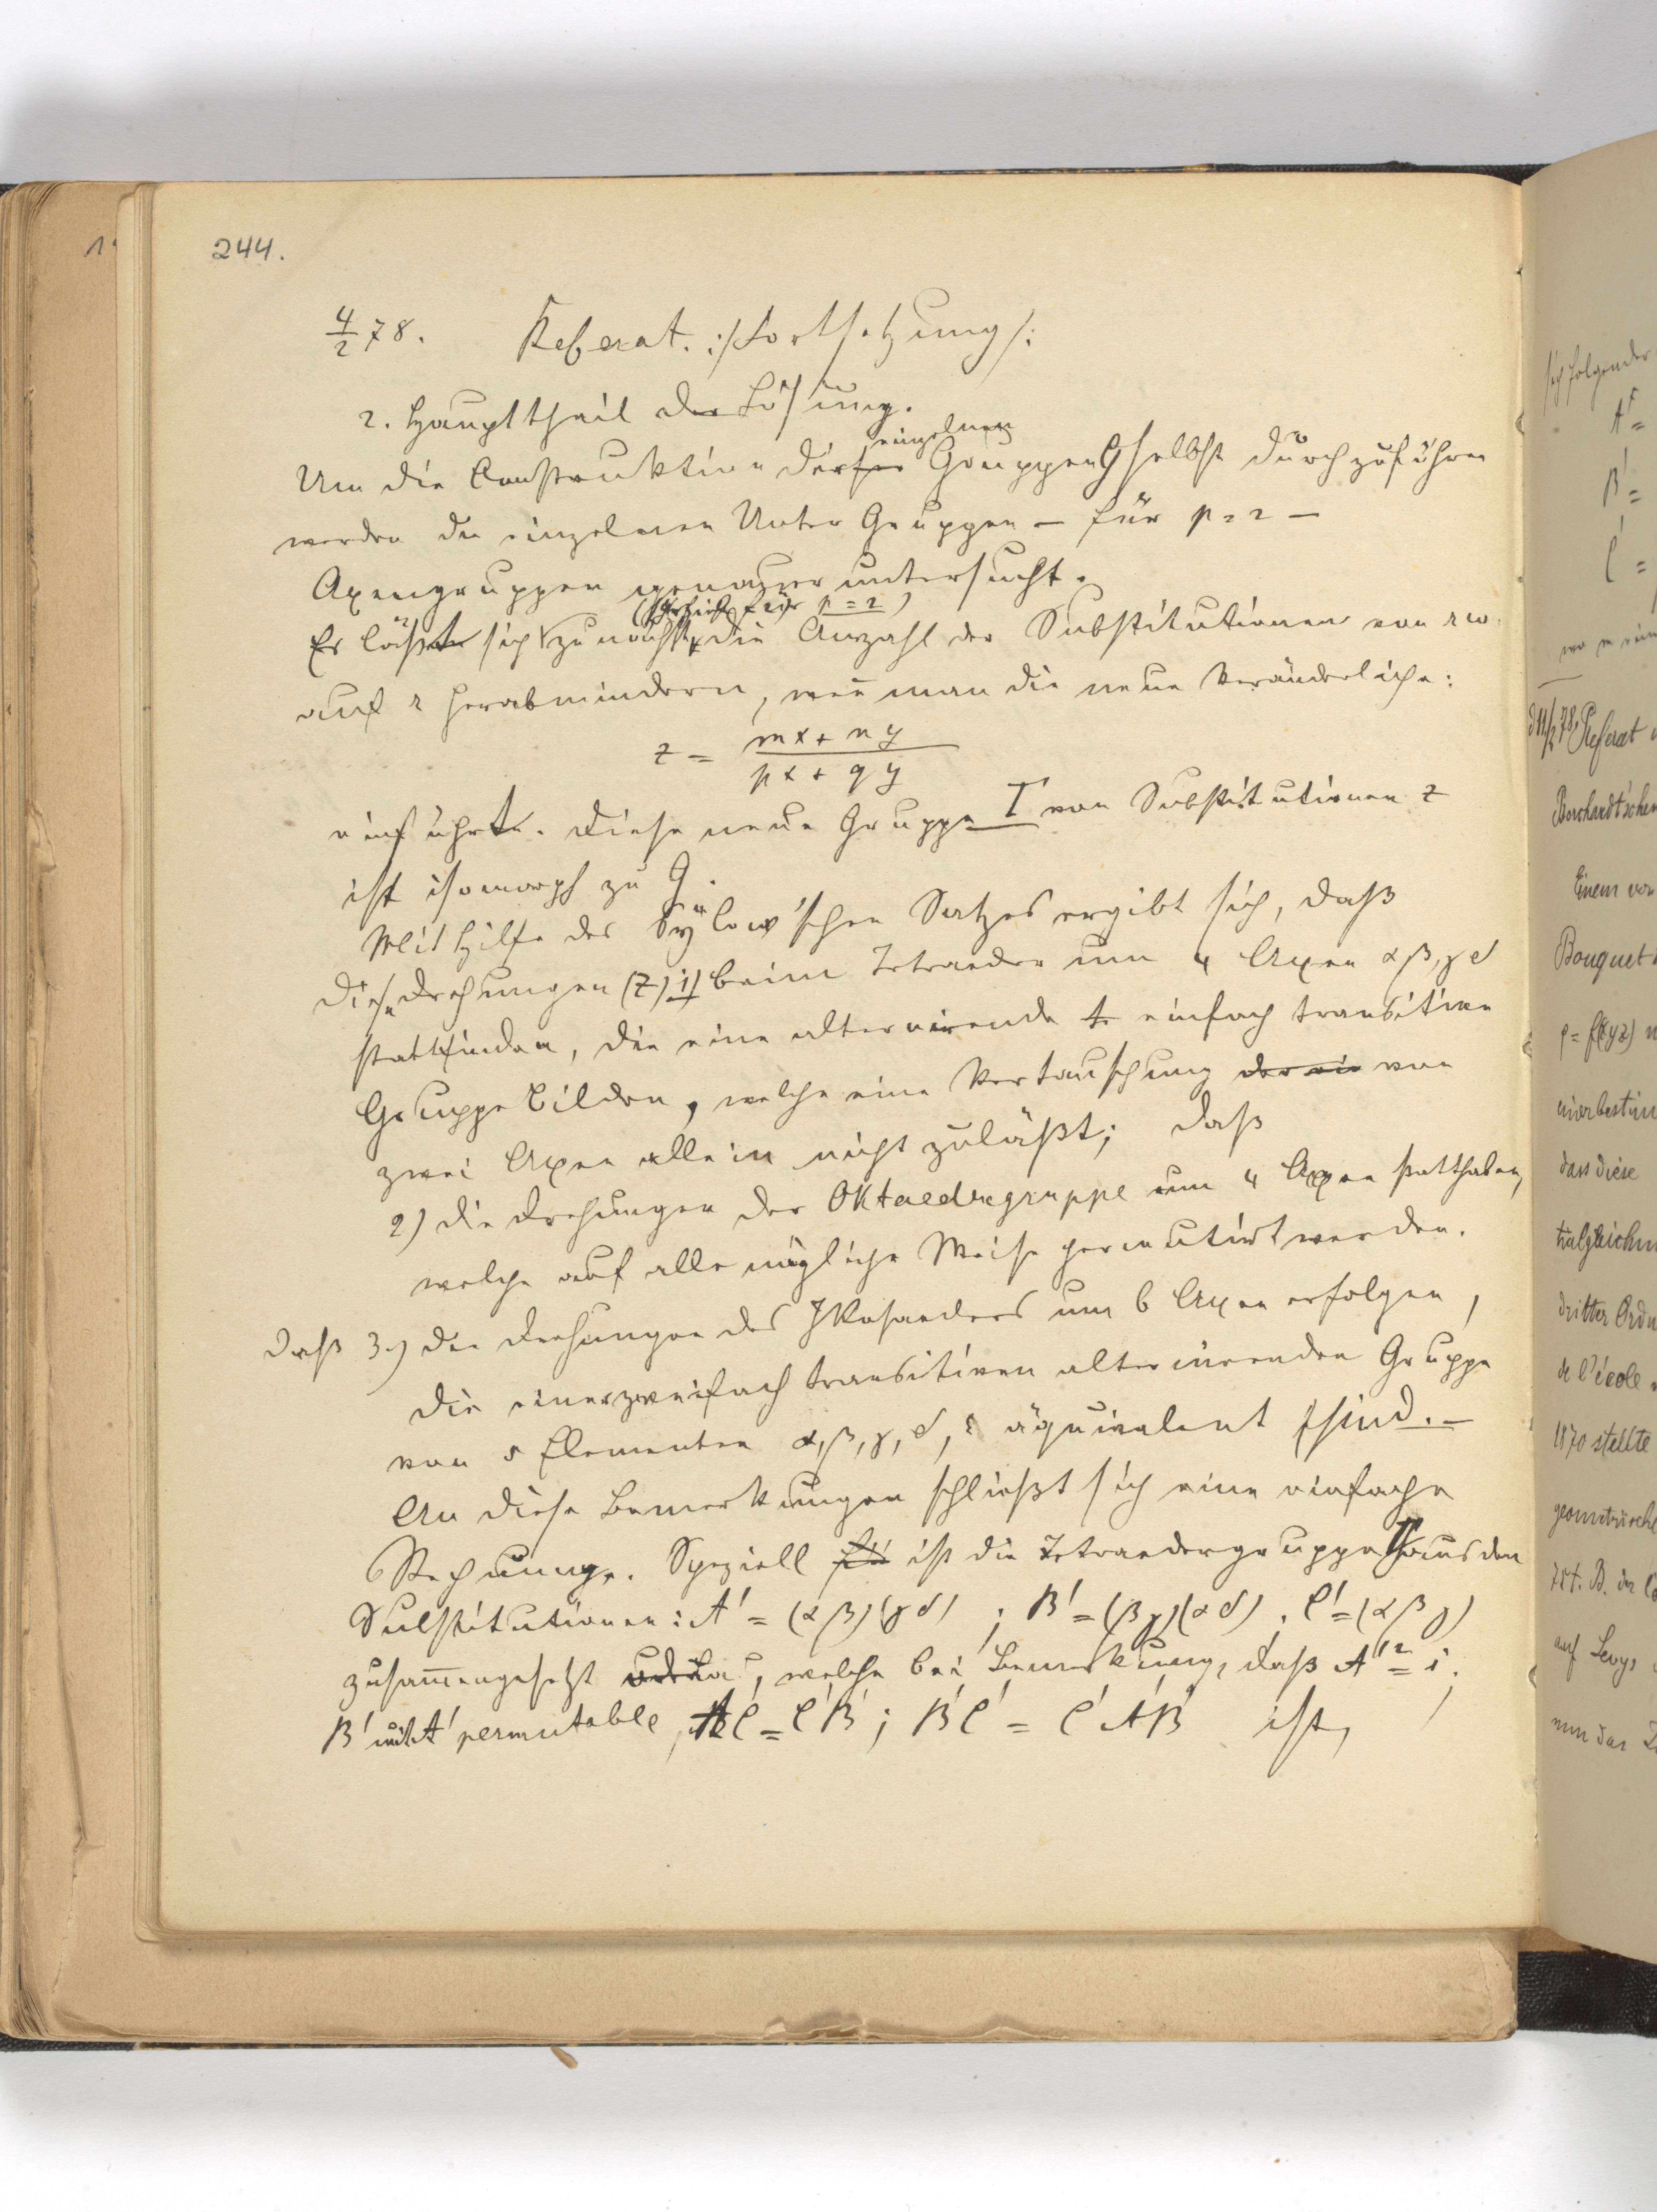 244.
4/2 78. Referat. :/Fortsetzung/:
2. Haupttheil der Lösung.
Um die Construktion der einzelnen Gruppen G selbst durchzuführen
werden die einzelnen Unter Gruppen – für p = 2 –
Axengruppen genauer untersucht.
(speziell für p = 2)
Es läßt sich zunächst die Anzahl der Substitutionen von rω
auf r herabmindern, weñ man die neue Veränderliche:
z = (mx + ny)/(px + qy)
einführte. Diese neue Gruppe Γ von Substitutionen z
ist isomorph zu G.
Mit Hilfe des Sylow'schen Satzes ergibt sich, daß
die Drehungen (z) 1) beim Tetraeder um 4 Axen α β, γ δ
stattfinden, die eine alternirende einfach transitive
Gruppe bilden, welche eine Vertauschung von
zwei Axen allein nicht zuläßt; daß
2) die Drehungen der Oktaedergruppe um 4 Axen statthaben,
welche auf alle mögliche Weise permutirt werden.
daß 3.) die Drehungen des Ikosaeders um 6 Axen erfolgen,
die einer zweifach transitiven alternirenden Gruppe
von 5 Elementen α, β, γ, δ, ε äquivalent sind. –
An diese Bemerkungen schließt sich eine einfache
Rechnung. Speziell ist die Tetraedergruppe aus den
Substitutionen: A' = (α β) (γ δ) ; B' = (β γ) (α δ) . C' = (α β γ)
zusam̄engesetzt, welche bei Bemerkung, daß A'² = i;
B' mit A' permutable, A'C' = C'B' ; B'C' = C'A'B' ist,
sich folgender
A' =
B' =
C' =
d 11/2 78, Referat
Borchardt'schen
Einem von
Bouquet
ρ = f(xyz)
dass diese
dritter Ordn
de l'école
1870 stellte
geometrische
auf Levys
nun das